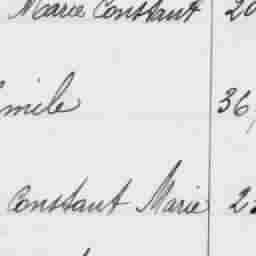 Marie Constant 20
Emile 36
Constant Marie 2